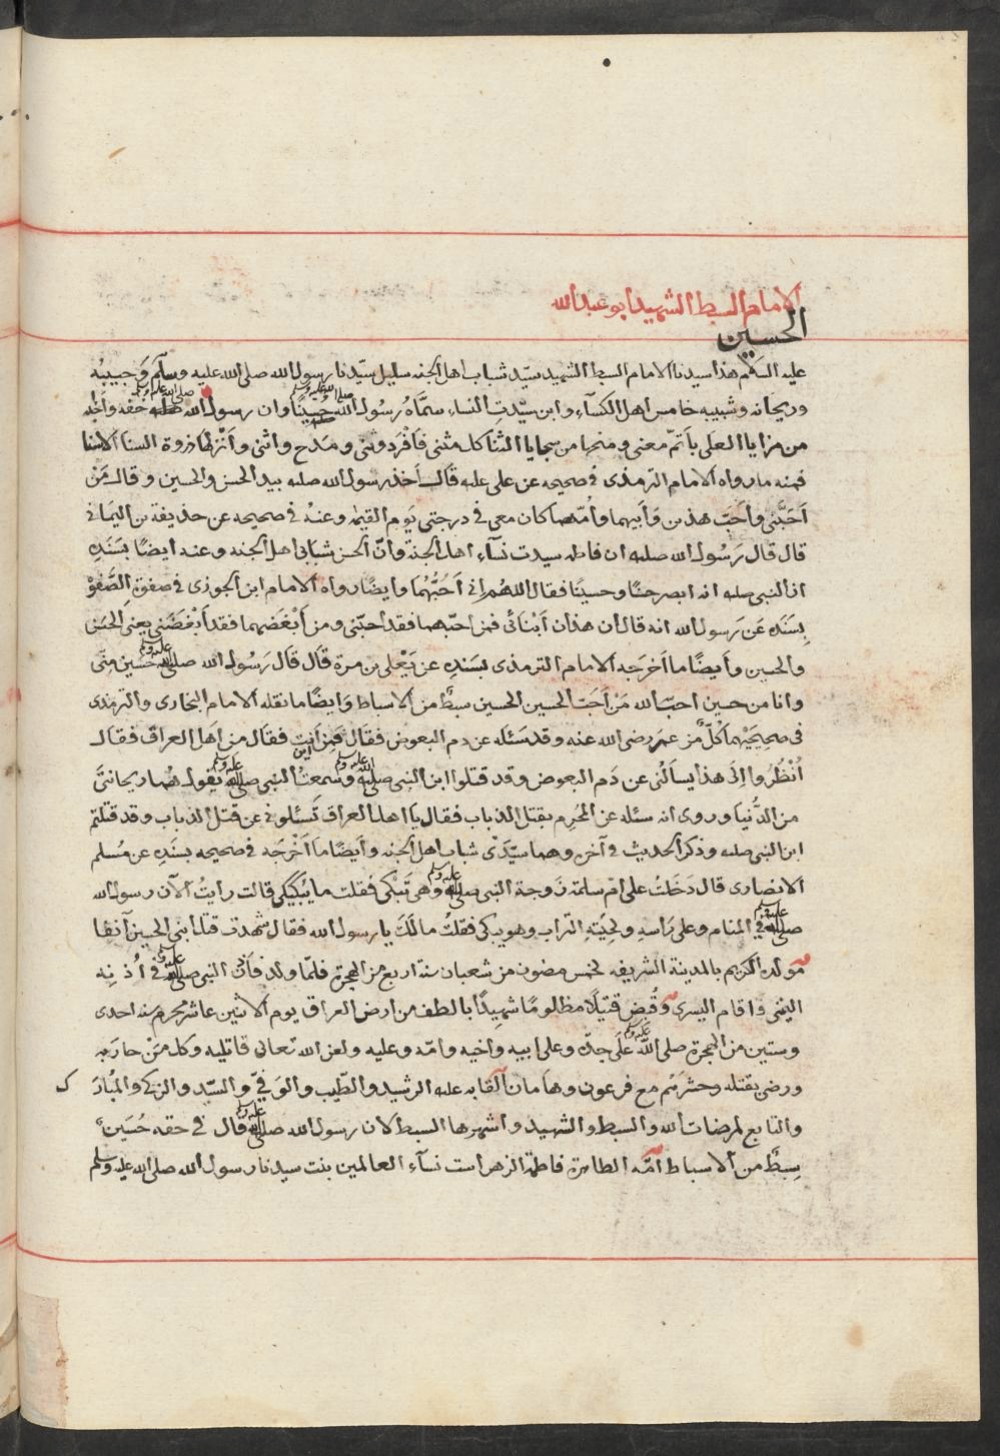 الامام السبط الشهيد ابو عبدالله
الحسين
عليه السلام هذا سيدنا الامام السبط الشهيد سيّد شباب اهل الجنه سليل سيّدنا رسول الله صلى الله عليه وسلّم وَحبيبُه
وريحانه وشبيبه خامس اهل الكسآء وابن سيّدتِ النساء سمّاهُ رُسُولُ الله صلى الله عليه وسلم حُسينًا وان رسول الله صلى الله عليه وسلم خفه وأجله
من مزايا العلى باَتمّ معنى ومنحها من سجايا الثنا كل مثنى فاَفْرَد وثنى ومَدح واثنى واَنزلها ذروة السنا الاسنا
فمنه ما رواه الامام الترمذى فى صحيحه عن على عله قَال اَخذ رسول الله صلعه بيد الحسن والحسين وقال مَنْ
اَحبَّنى وأَحَبّ هذين وَاَبيهما وأُمّهما كان معى فى درجتى يَوم القيمة وعنهُ فى صحيحه عن حذيفة بن اليَمانى
قال قال رَسُول الله صلعه ان فاطمه سيدت نسآء اهل الجنة وانّ الحسن شبابى اهل الجنه وعنه ايضًا بسَنَدِه
ان النبى صلعه انه ابصر حسنًا وحسينًا فقال اللهُم انى اَحُبُّهُما وايضًا رواه الامام ابن الجوزى فى صفوة الصَّفوْ
بِسَنَدِه عَن رَسول الله انه قال ان هذان اَبْنَائى فمن احبّهما فقد احبّنى ومن اَبْغَضهما فقد اَبْغَضَنى يعنى الحسَن
والحسين وأيضًا ما اَخرَجه الامام الترمذى بسَندِه عن يَعْلى بن مرة قال قال رَسُول الله صلى الله عليه وسلم حُسَين منّى
وانا من حسين احبّ الله مَنْ اَحَبّ الحسين الحسين سبطٌ من الاسباط وَايضًا ما نقله الامام البخارى والترمذى
فى صَحِيحَيْهما كُلٌّ من عمَر رضى الله عنه وقد سَئله عن دم البعوض فقال فمِن اين انت فقال من اهَل العراق فقال
اُنْظُرُوا اِلىَ هذا يسالنى عن دَم البعوض وقد قتلوا ابن النبى صلى الله عليه وسلم وسَمعتُ النبى صلى الله عليه وسلم يقول هُما ريحانتىَّ
من الدُّنيا وروى انه سئله عن المُحرِم بقتل الذباب فقال يا اهل العراق تَسئلونى عن قتل الذباب وقد قتلتم
ابن النبى صلعه وذكر الحديث فى آخره وهما سيّدَىْ شباب اهل الجنه وأيضًا مَا اَخْرَجَه فى صحيحه بسنَدِه عن مُسلم
الانصارى قال دَخَلتُ على امّ سلمة زَوجة النبى صلى الله عليه وسلم وهى تَبْكى فقلت ما يُبْكيكى قالت رايتُ الآن رسول الله
صلى الله عليه وسلم فى المنام وعلى رَأسهِ ولحِيَتِه التّراب وهو يبكى فقلتُ مالَكَ يا رسول الله فقال شهدت قتل ابنى الحسين آنفا
مولده الكريم بالمدينة الشريفه لخمس مضون من شعبان سنة اربع من الهجرة فلمّا ولد فاذن النبى صلى الله عليه وسلم فى اُذنِه
اليمنى واقام اليسرى وقُبِض قتيلًا مظلومًا شهيدًا بالطف من ارض العراق يوم الاثنين عاشر محرم سنه احدى
وستين من الهجرة صلى الله عليه وسلم عَلَى جدّه وعلى ابيه واخيه وامّه وعليه ولعن الله تعالى قاتليه وكل مَنْ حارَبه
ورضى بقتله وحشرَهُم مع فرعون وهامان القابه عله الرشيد والطّيب والوَفىّ والسيّد والزكى والمُبارَ ك
والتابع لمرضات الله والسبط والشهيد واشهرها السبط لان رسول الله صلى الله عليه وسلم قال فى حقه حُسَين
سِبطٌ من الاسباط اُمّه الطاهرة فاطمة الزهرا ست نسآء العالمين بنت سيدنا رسول الله صلى الله عليه وسلم